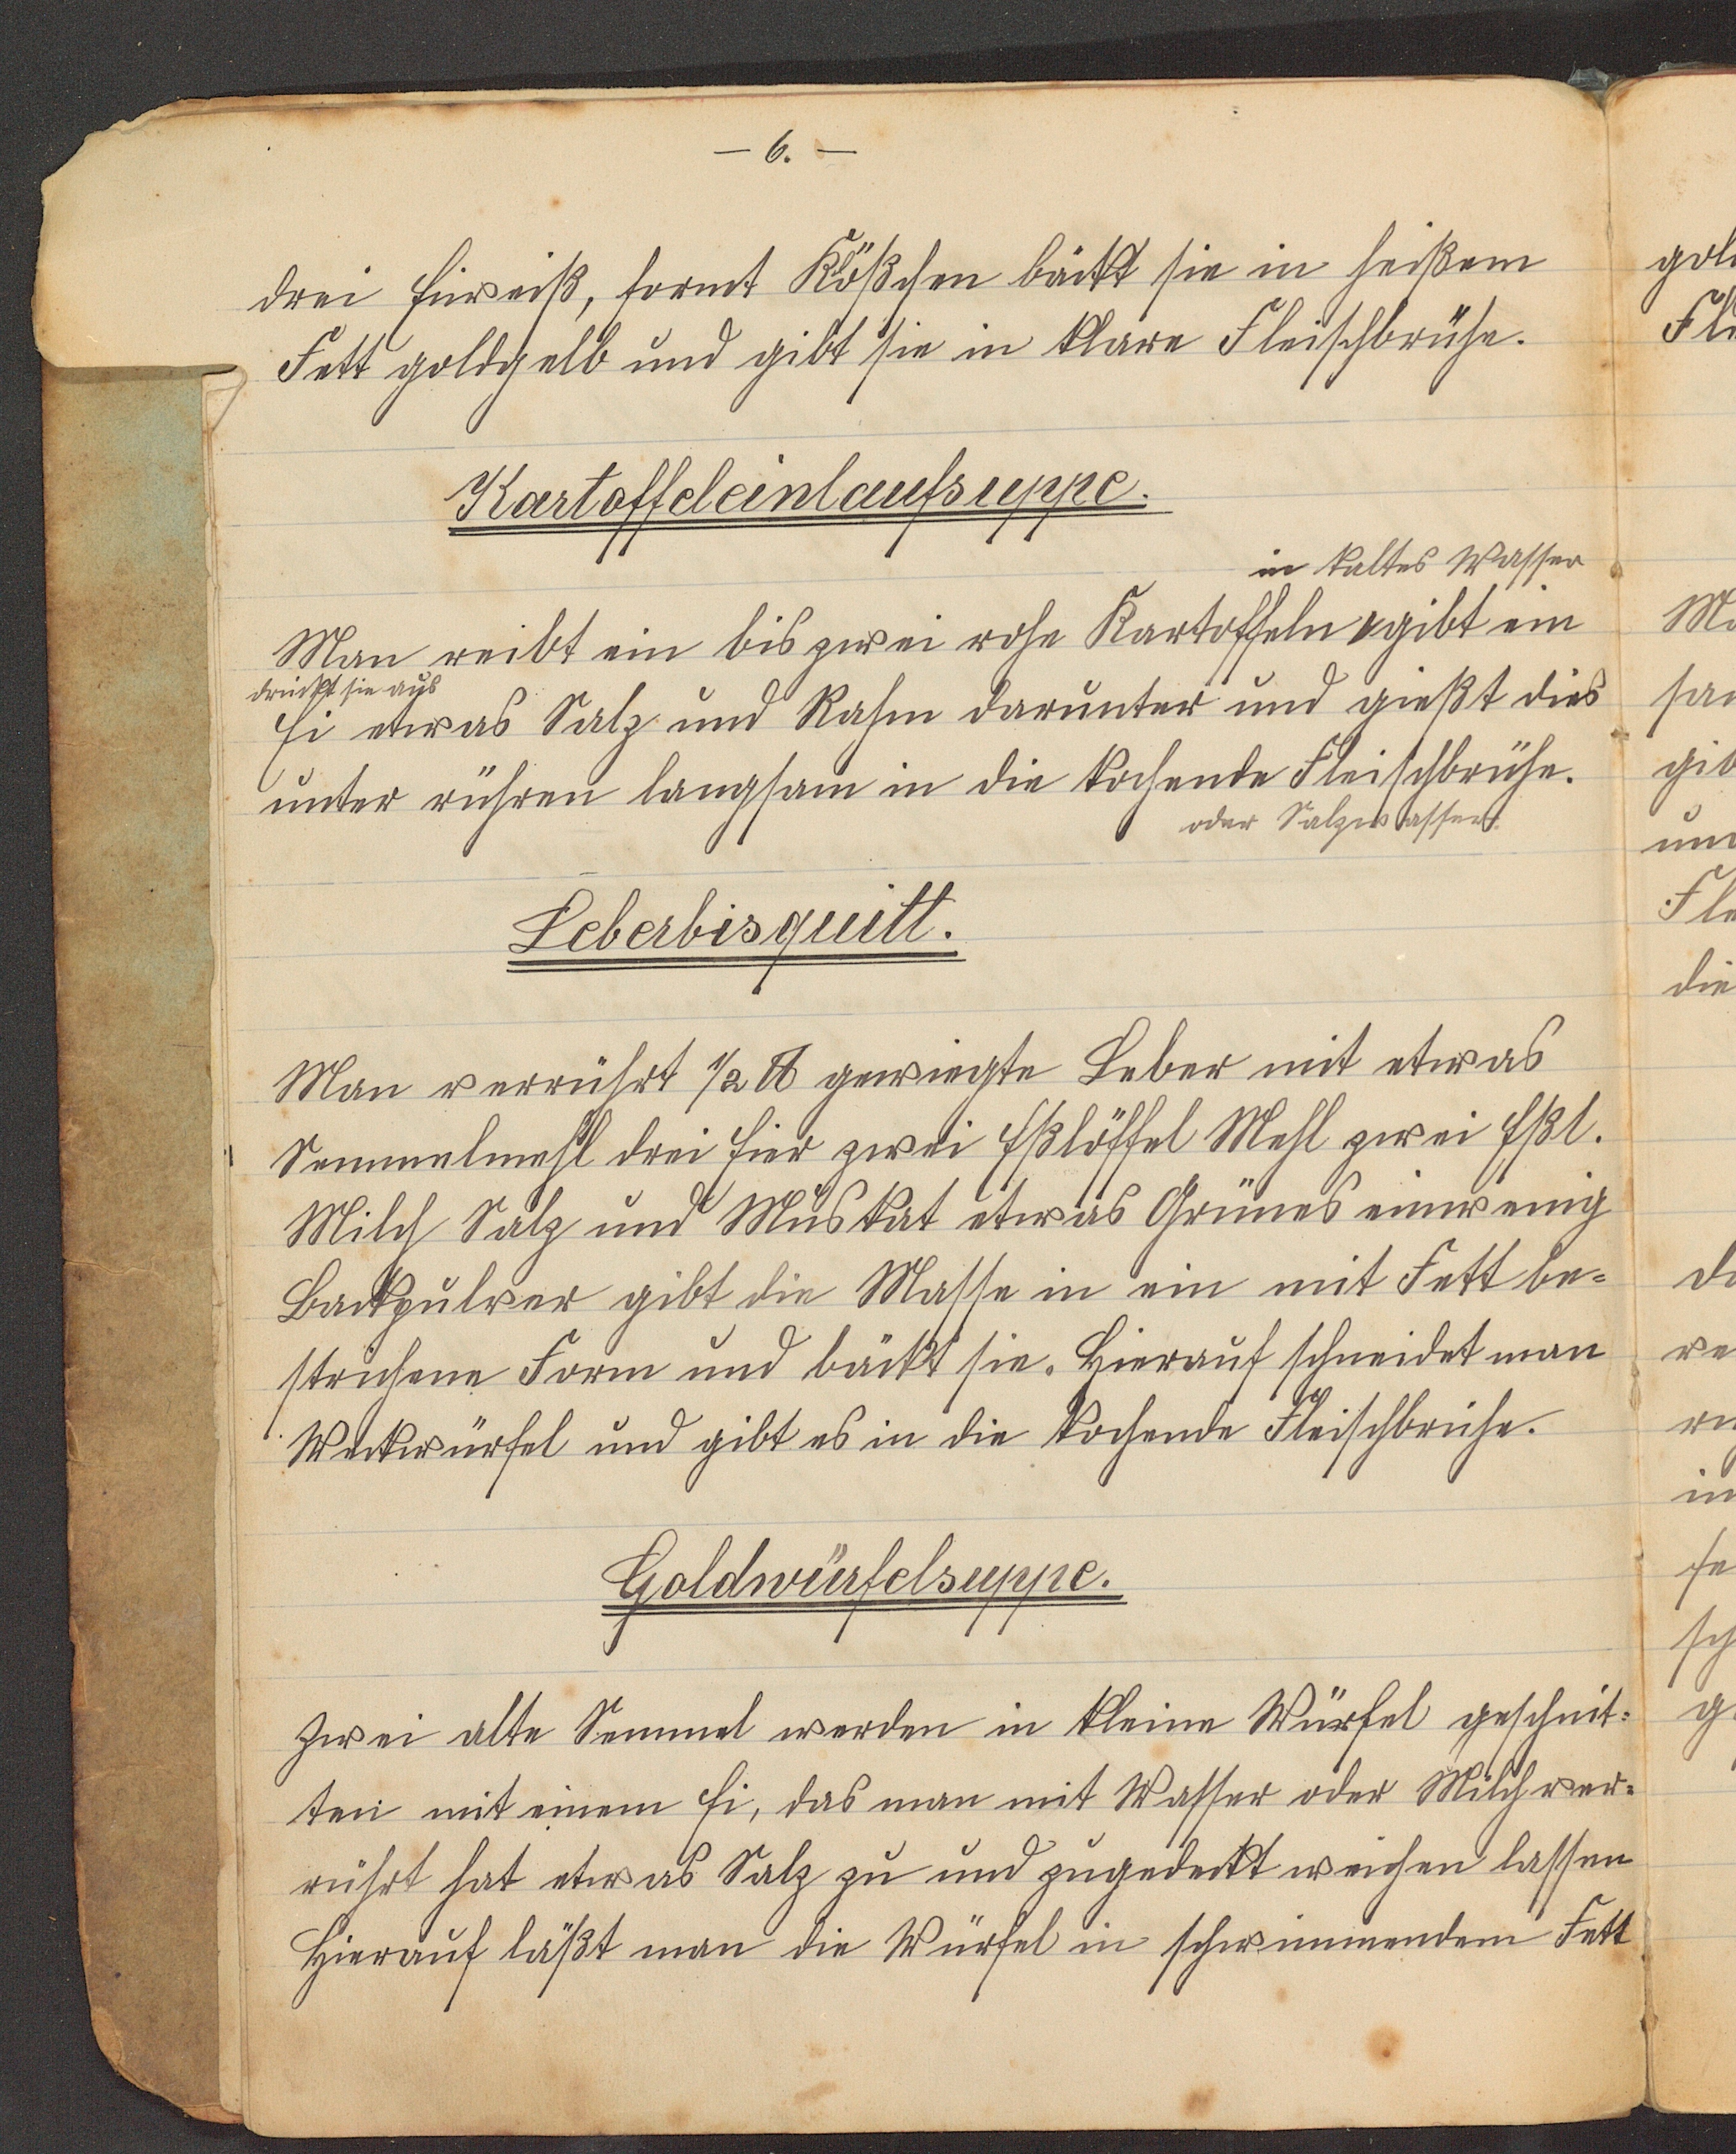 – 6. –
drei Eiweiß, formt Klößchen bäckt sie in heißem
Fett goldgelb und gibt sie in klare Fleischbrühe.
Kartoffeleinlaufsuppe.
in kaltes Wasser
Man reibt ein bis zwei rohe Kartoffeln gibt ein
drückt sie aus
Ei etwas Salz und Rahm darunter und gießt dies
unter rühren langsam in die kochende Fleischbrühe.
oder Salzwasser.
Leberbisquitt.
Man verrührt 1/2 ℔ gewiegte Leber mit etwas
Semmelmehl drei Eier zwei Eßlöffel Mehl zwei Eßl.
Milch Salz und Muskat etwas Grünes einwenig
Backpulver gibt die Masse in ein mit Fett be=
strichene Form und bäckt sie. Hierauf schneidet man
Weckwürfel und gibt es in die kochende Fleischbrühe.
Goldwürfelsuppe.
Zwei alte Semmel werden in kleine Würfel geschnit=
ten mit einem Ei, das man mit Wasser oder Milch ver=
rührt hat etwas Salz zu und zugedeckt weichen lassen
Hierauf läßt man die Würfel in schwimmendem Fett